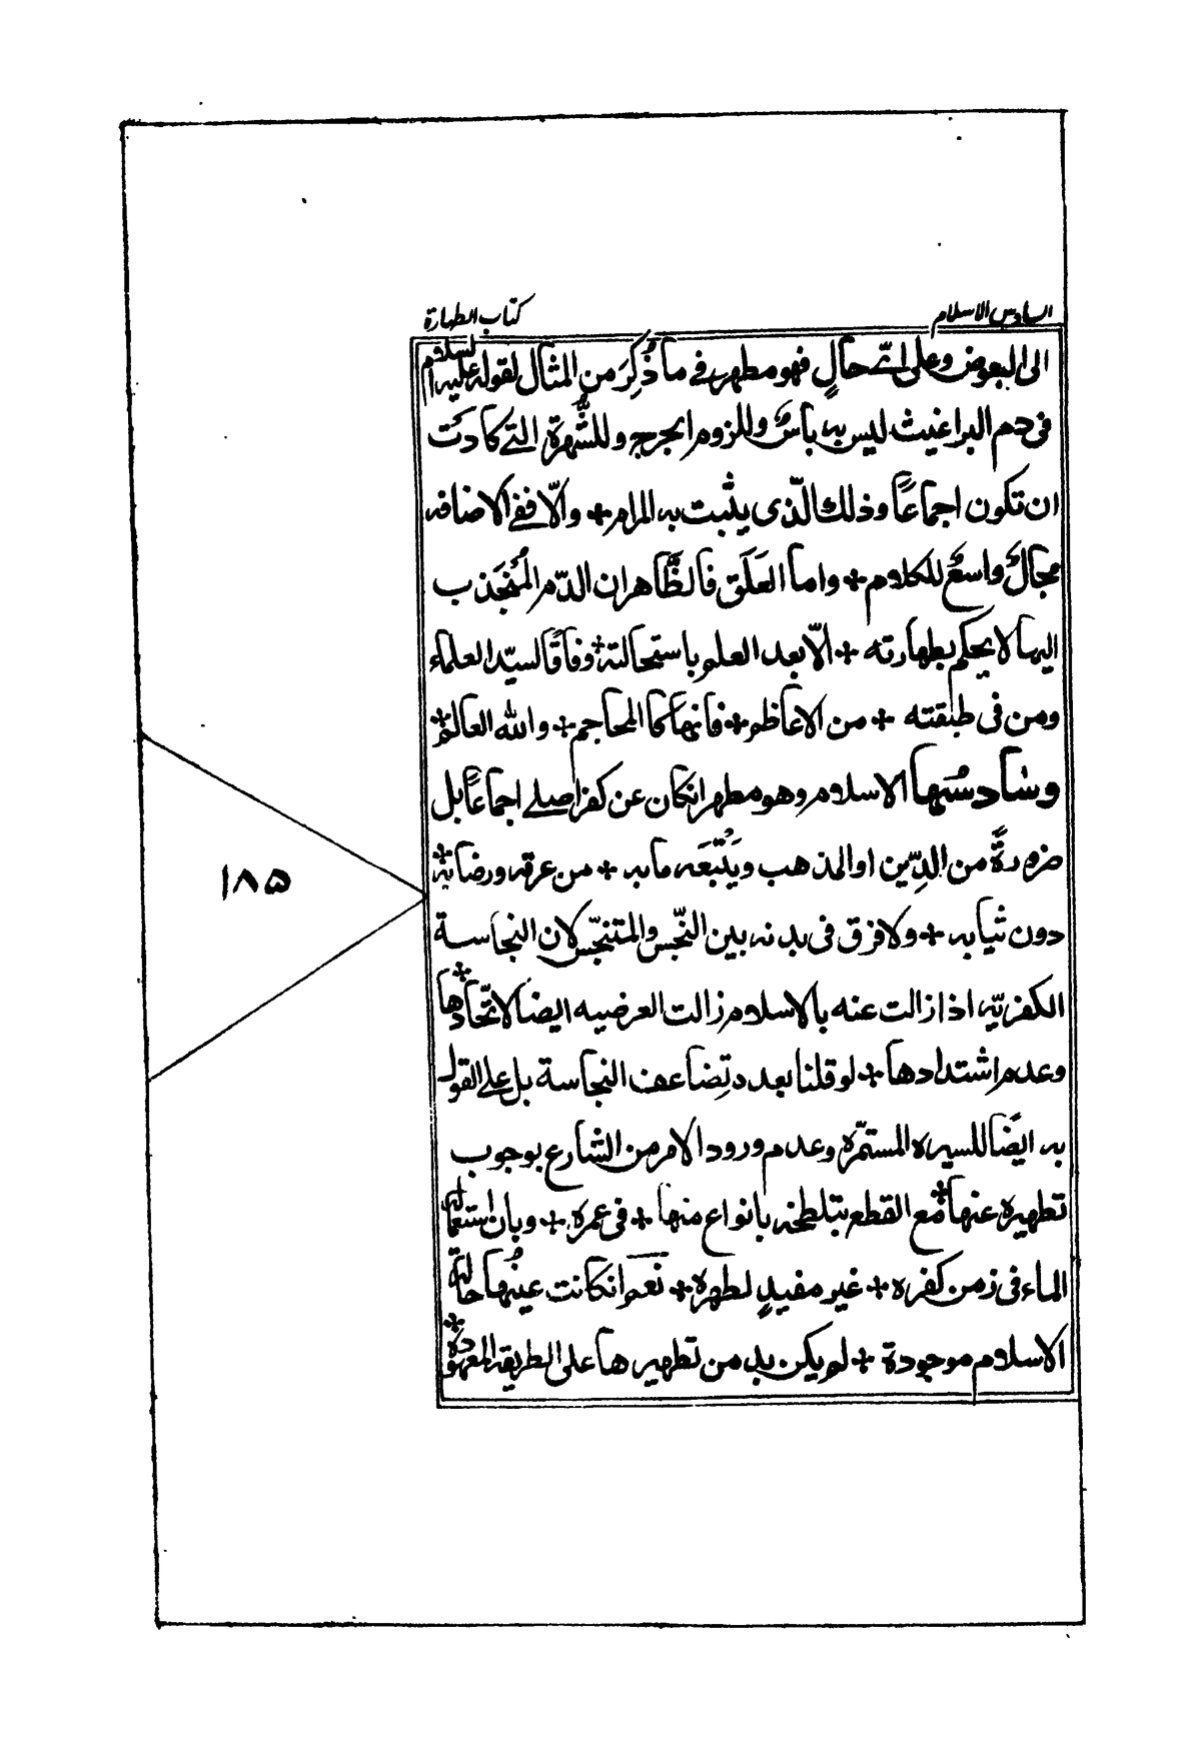 السادس الاسلام
كتاب الطهارة
الى البعوض وعلى اىّ حالٍ فهو مطهر فى ما ذُكِرَ من المثال لقوله عليه السلام
فى دم البراغيث ليس به باسٌ وللزوم الحرج وللشُّهرة التى كادَت
ان تكون اجماعًا وذلك الّذى يثبت به المرام + والّا ففى الاضافه
مجالٌ واسعٌ للكلام + واما العَلَق فالظَّاهر ان الدّم المُنجَذب
اليها لا يحكم بطهارته + الّا بعد العلم باستحالته + وفاقًا لسيّد العلماء
ومن فى طبقته + من الاعاظم + فانها كالمحاجم + والله العالم +
وسَادسُها الاسلام وهو مطهر انكان عن كفر اصلى اجماعًا بل
ضرورةً من الدِّين او المذهب ويَتْبَعُه ما به + من عرقه ورضابه +
دون ثيابه + ولا فرق فى بدنه بين النّجس والمتنجّس لان النجاسة
الكفريّه اذا زالت عنه بالاسلام زالت العرضيه ايضا لاتّحادها +
وعدم اشتدادها + لو قلنا بعدم تضاعف النجاسة بل على القول
به ايضًا للسيره المستمّره وعدم ورود الامر من الشارع بوجوب
تطهيره عنها + مع القطع بتلطخه بانواع منها + فى عمره + وبان استعماله
الماء فى زمن كفره + غير مفيدٍ لطهره + نعم انكانت عينُها حالة
الاسلام موجودة + لم يكن بد من تطهيرها على الطريقه المعهودة +
١٨٥